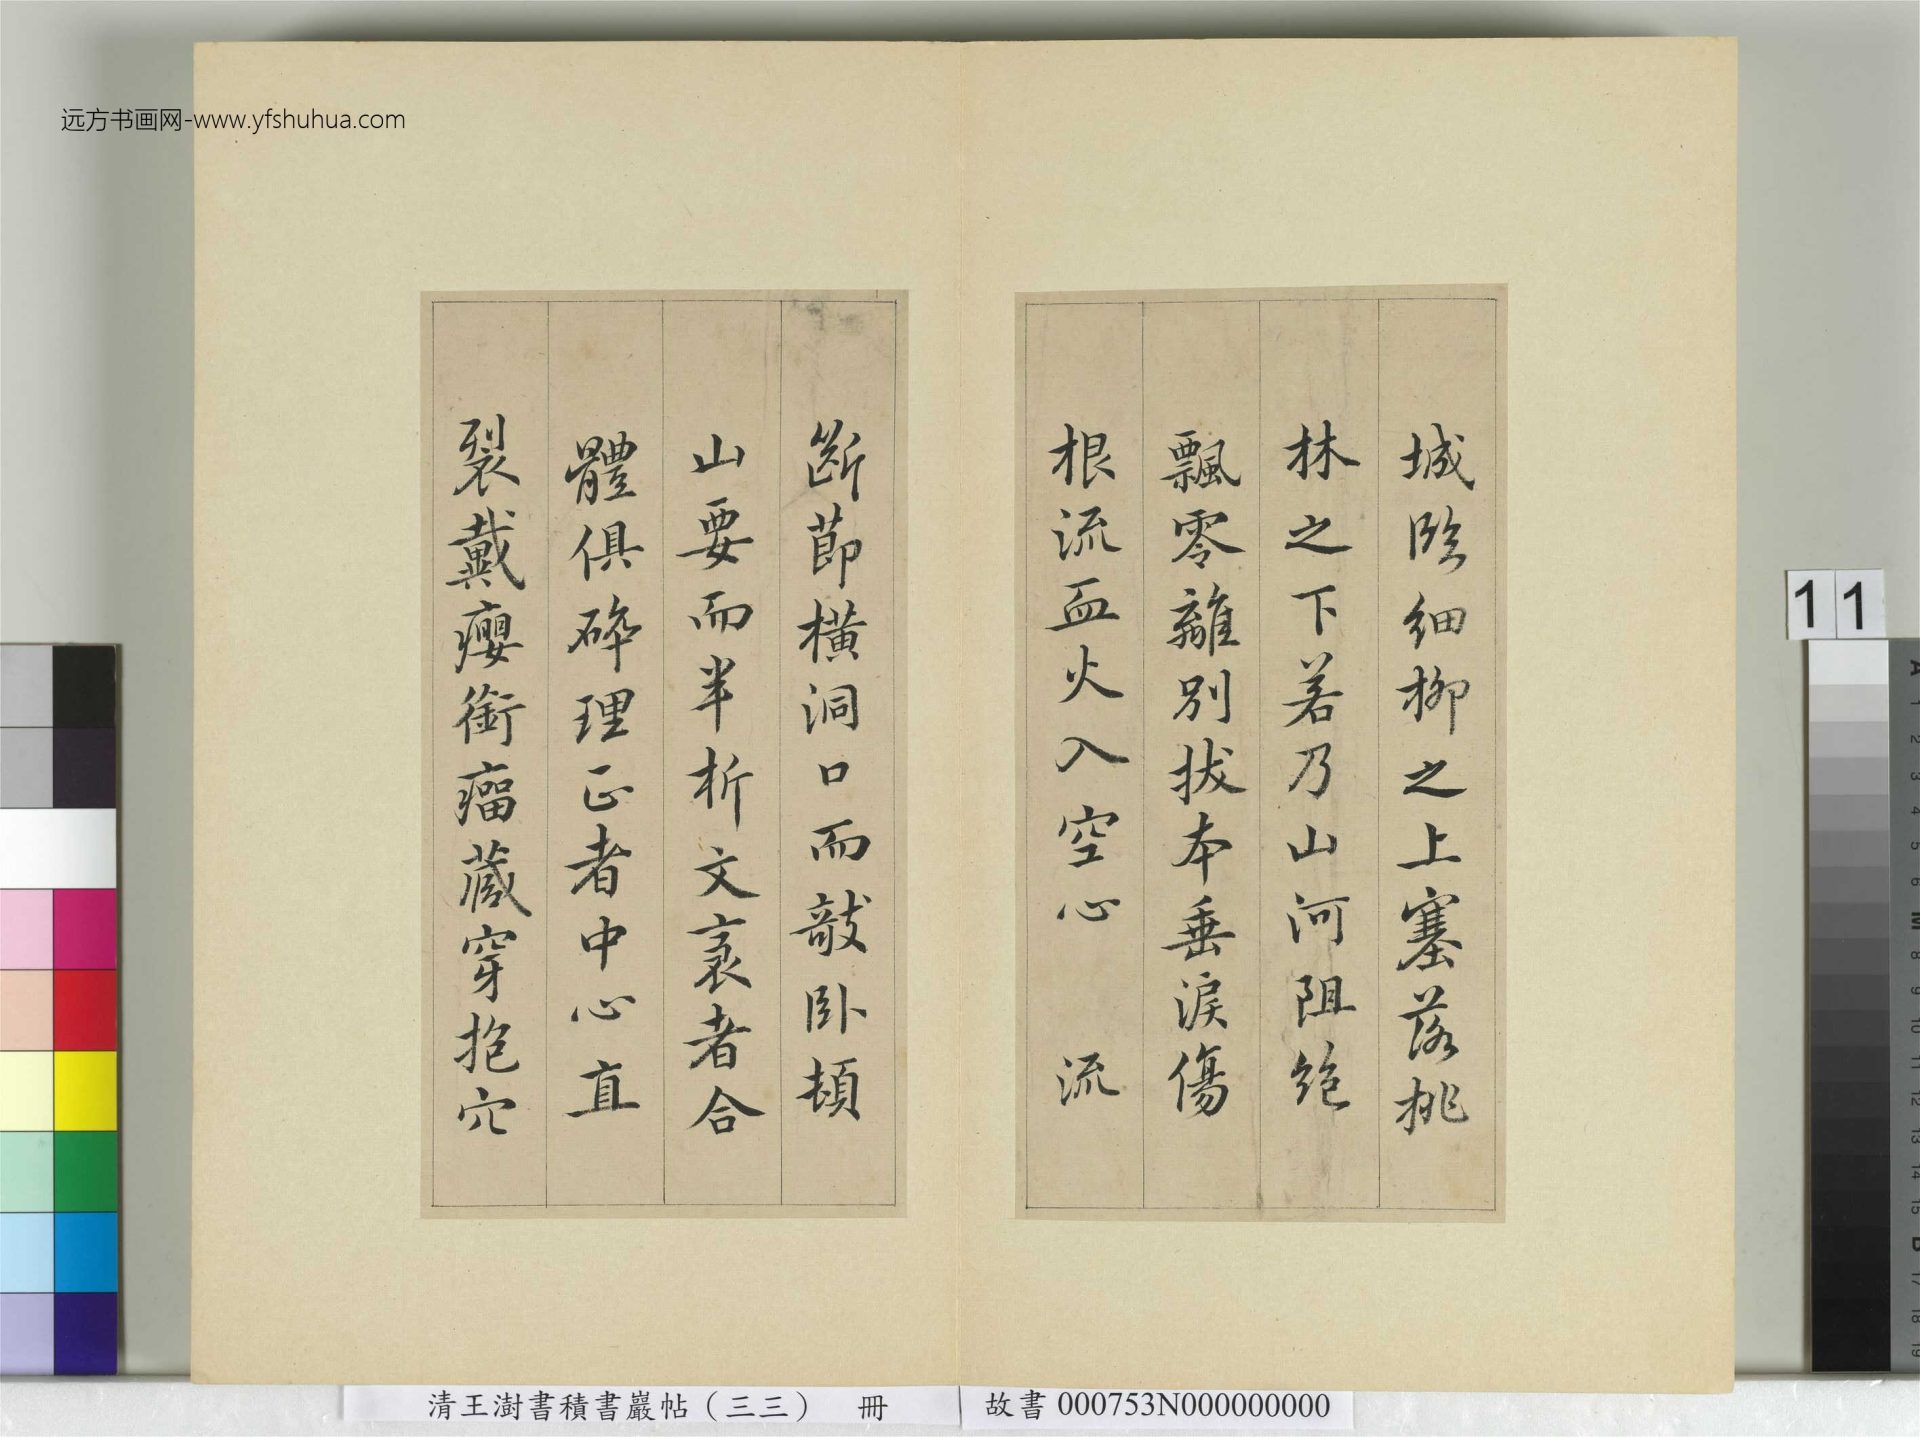 远方书画网-www.yfshuhua.com
城臨細柳之上塞落桃
林之下若乃山河阻絶
飄零離別拔本垂淚傷
根流血火入空心 流
斷莭橫洞口而敧卧頓
山要而半折文衺者合
體俱碎理正者中心直
裂戴癭銜瘤藏穿抱穴
11
清王澍書積書巖帖（三三） 冊
故書 000753N000000000